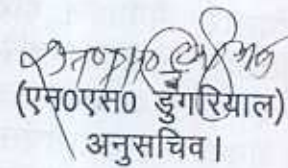 (एम0एस0 डुंगरियाल)
अनुसचिव।